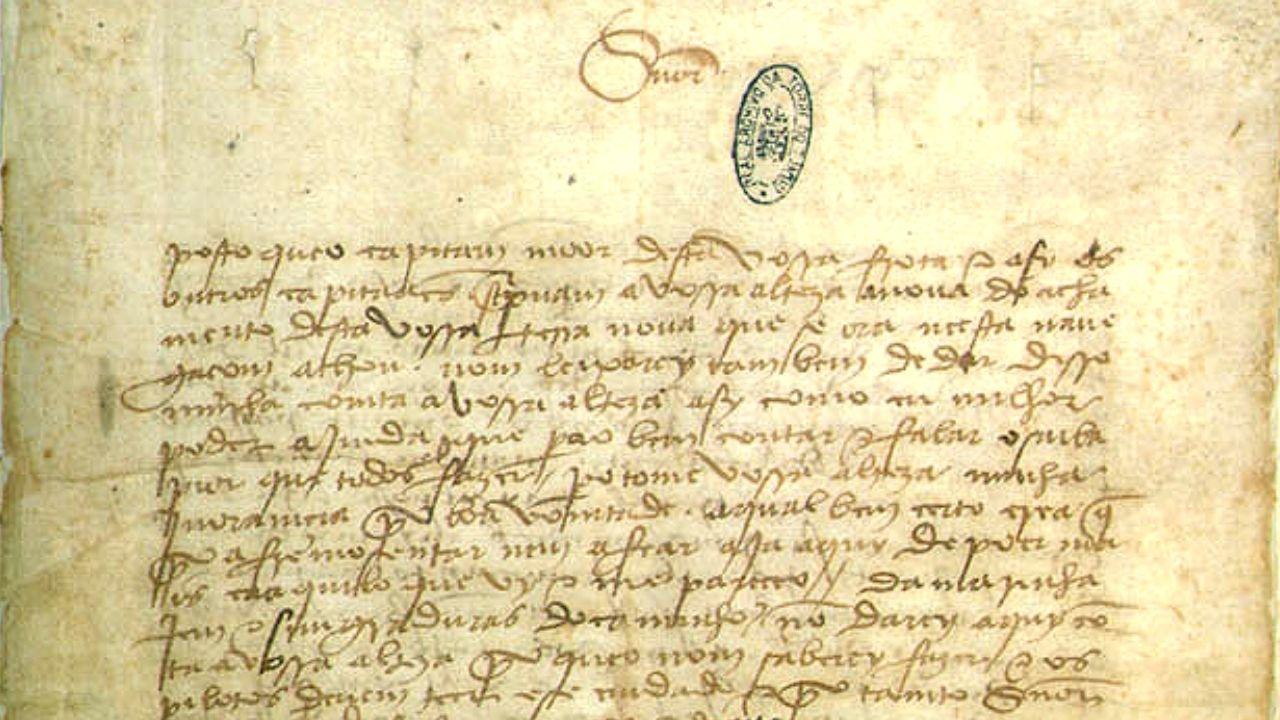 Snõr
REAL ARCHIVO DA TORRE DO TOMBO
posto queo capitam moor desta vossa frota e asy os
outros capitaães screpuam a vossa alteza anoua do acha
mento desta vossa terra noua que se ora neesta naue
gaçom achou. nom leixarey tambem de dar disso
minha comta avossa alteza asy como eu milhor
poder ajmda que pera o bem contar e falar o saiba
pior que todos fazer / pero tome vossa alteza minha
jnoramçia por boa vomtade. aqual bem certo crea q̃
por afremosentar nem afear aja aquy de poer ma
is caaquilo que vy e me pareceo // da marinha
jem e simgraduras do caminho nõ darey aquy cõ
ta avossa alteza por queo nom saberey fazer e os
pilotos deuem teer ese cuidado e por tamto Snõr